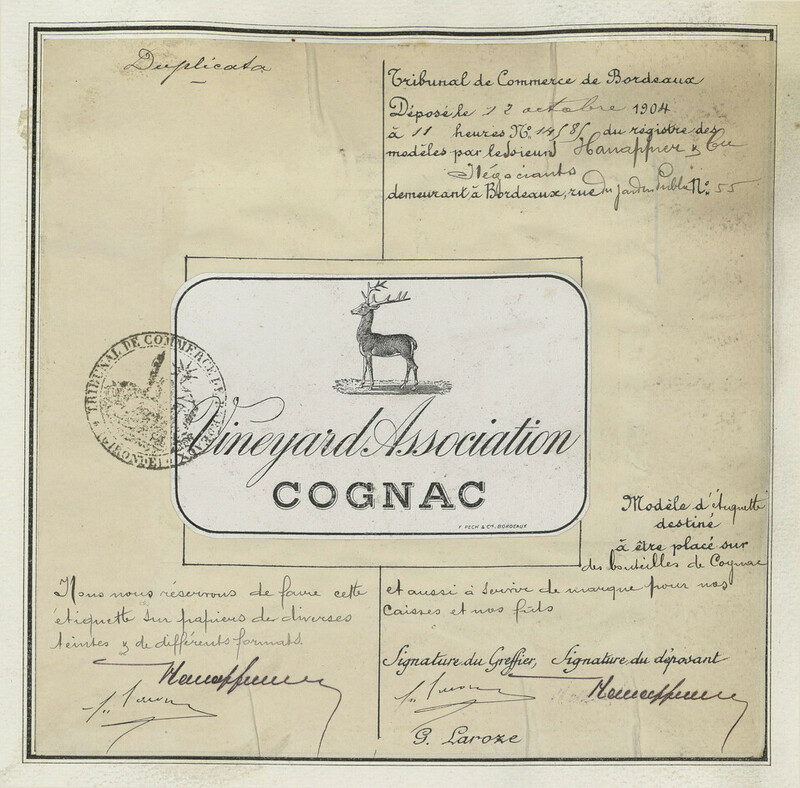 Duplicata
Tribunal de Commerce de Bordeaux
Déposé le 12 octobre 1904
à 11 heures No. 14585 du régistre des
modèles par le sieurs Hanappier & Cie
Négociants
demeurant à Bordeaux, rue du jardin Public No. 55
TRIBUNAL DE COMMERCE DE BORDEAUX
(GIRONDE)
Vineyard Association
COGNAC
F. PECH & Cie. BORDEAUX
Modèle d'étiquette
destiné
à être placé sur
des bouteilles de Cognac
Nous nous réservons de faire cette
étiquette sur papiers de diverses
teintes & de différents formats.
et aussi à servir de marque pour nos
caisses et nos fûts
Signature du Greffier, Signature du déposant
G. Laroze